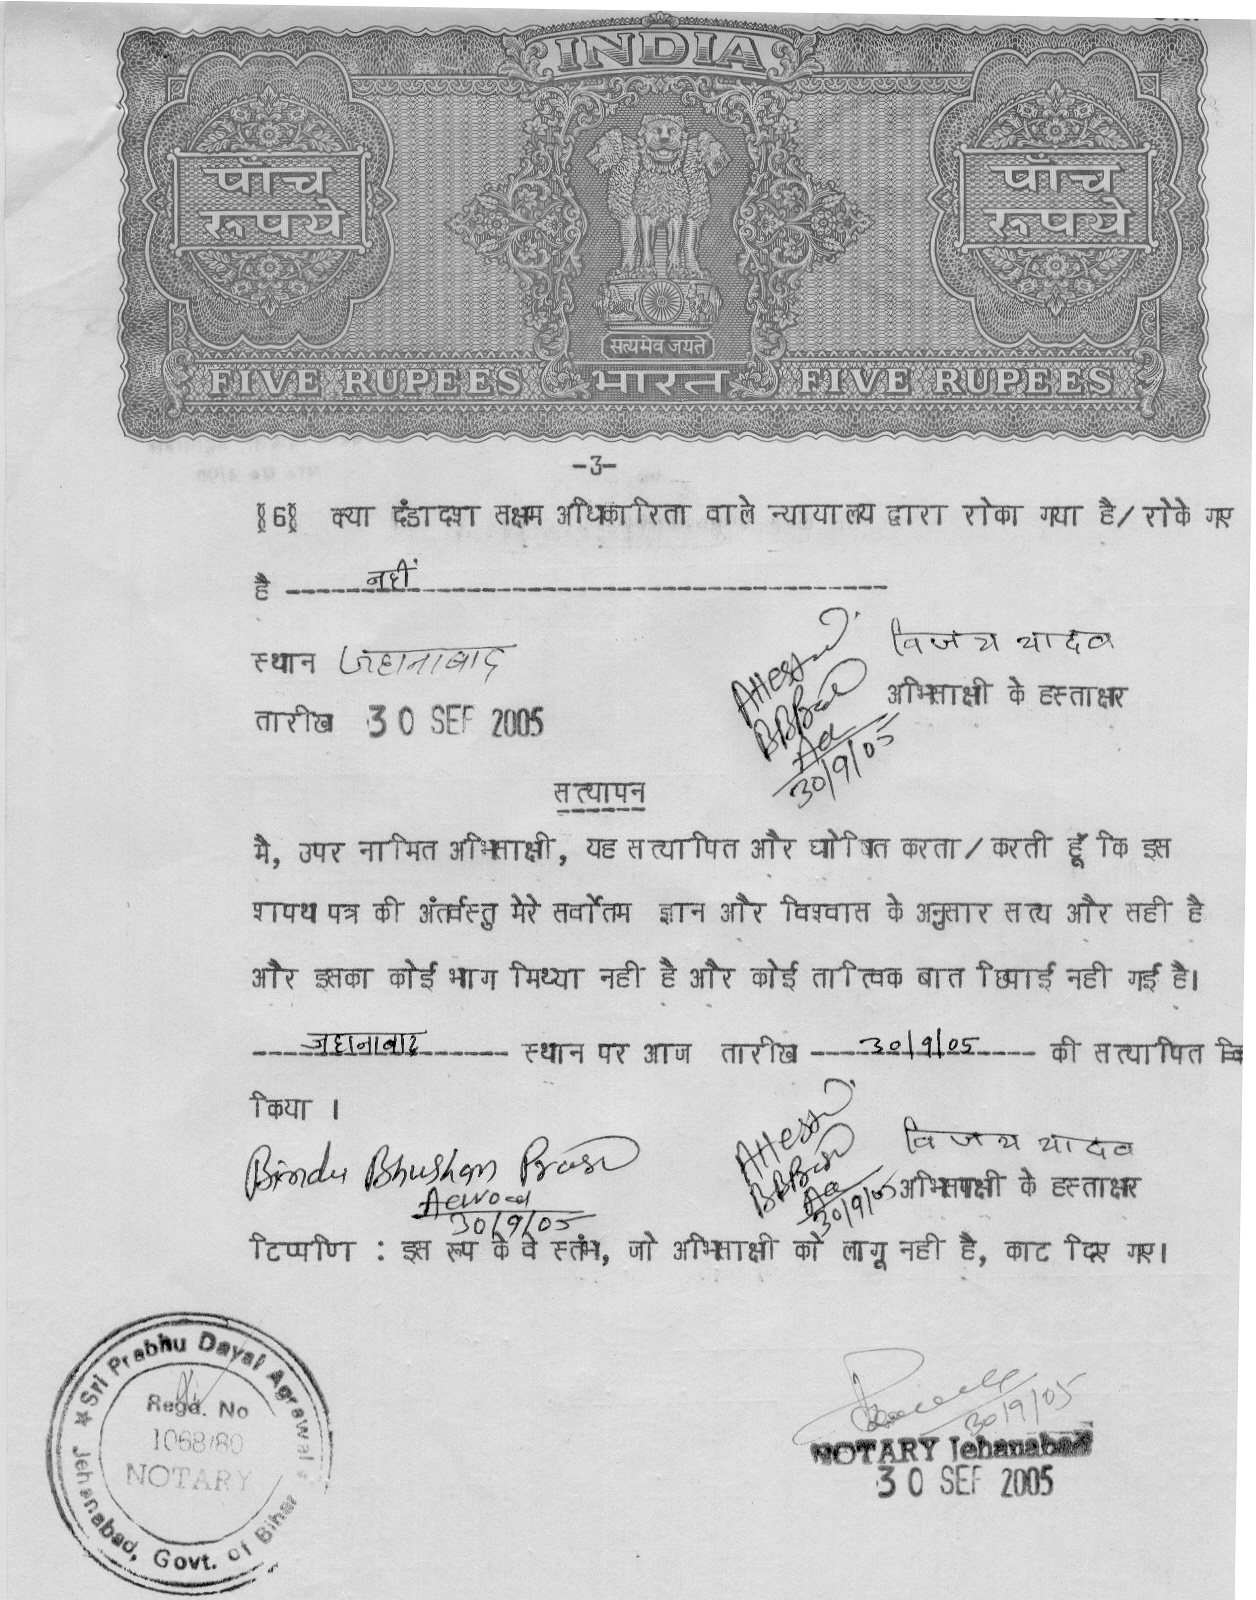 INDIA
पाँच
रूपये
पाँच
रूपये
सत्यमेव जयते
FIVE RUPEES भारत FIVE RUPEES
-3-
§6§ क्या दंडादेश सक्षम अधिकारिता वाले न्यायालय द्वारा रोका गया है/रोके गए
है ------नहीं------
स्थान जहानाबाद
विजय यादव
अभिसाक्षी के हस्ताक्षर
तारीख 30 SEP 2005
30/9/05
सत्यापन
मै, उपर नामित अभिसाक्षी, यह सत्यापित और घोषित करता/करती हूँ कि इस
शपथ पत्र की अंतर्वस्तु मेरे सर्वोतम ज्ञान और विश्वास के अनुसार सत्य और सही है
और इसका कोई भाग मिथ्या नही है और कोई तात्विक बात छिपाई नही गई है।
---जहानाबाद--- स्थान पर आज तारीख ---30/9/05--- की सत्यापित
किया ।
Bindu Bhushan Prasad
Advocate
30/9/05
30/9/05
विजय यादव
अभिसाक्षी के हस्ताक्षर
टिप्पणि : इस रूप के वे स्तंभ, जो अभिसाक्षी को लागू नही है, काट दिए गए।
Sri Prabhu Dayal Agrawal
Regd. No
1068/80
NOTARY
Jehanabad, Govt. of Bihar
30/9/05
NOTARY Jehanabad
30 SEP 2005